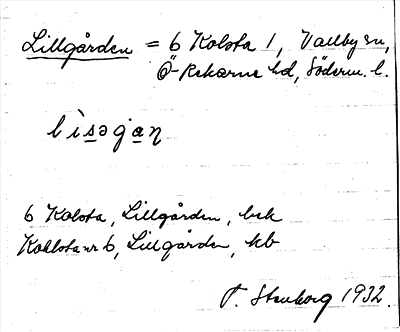 Lillgården = 6 Kolsta 1, Vallby sn,
Ö-Rekarne hd, Söderm. l.
lìsəgan
6 Kolsta, Lillgården, bek
Kolsta nr 6, Lillgården, kb
Stenborg 1932.